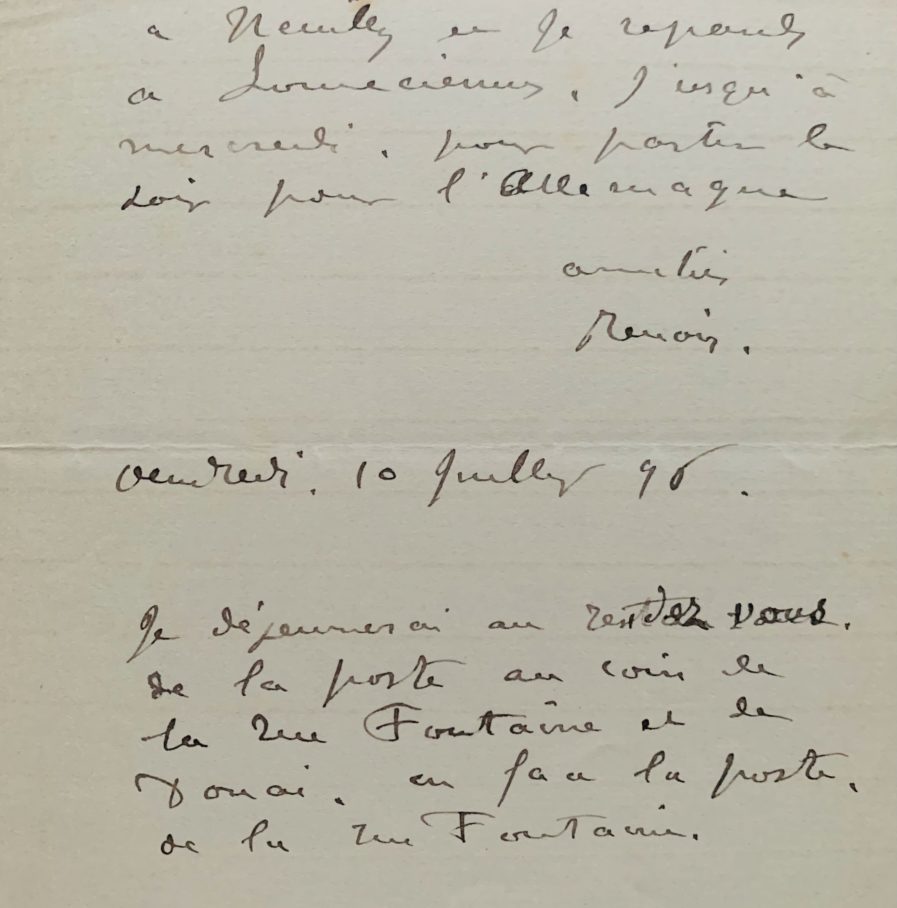 a Neuilly et je repends
a Louveciennes. Jusqu'à
mercredi. pour partir le
soir pour l'Allemagne
amitiés
Renoir.
vendredi. 10 Juillet 96.
Je déjeunerai au rendez vous.
de la poste au coin de
la rue Fontaine et de
Douai. en face la poste.
de la rue Fontaine.